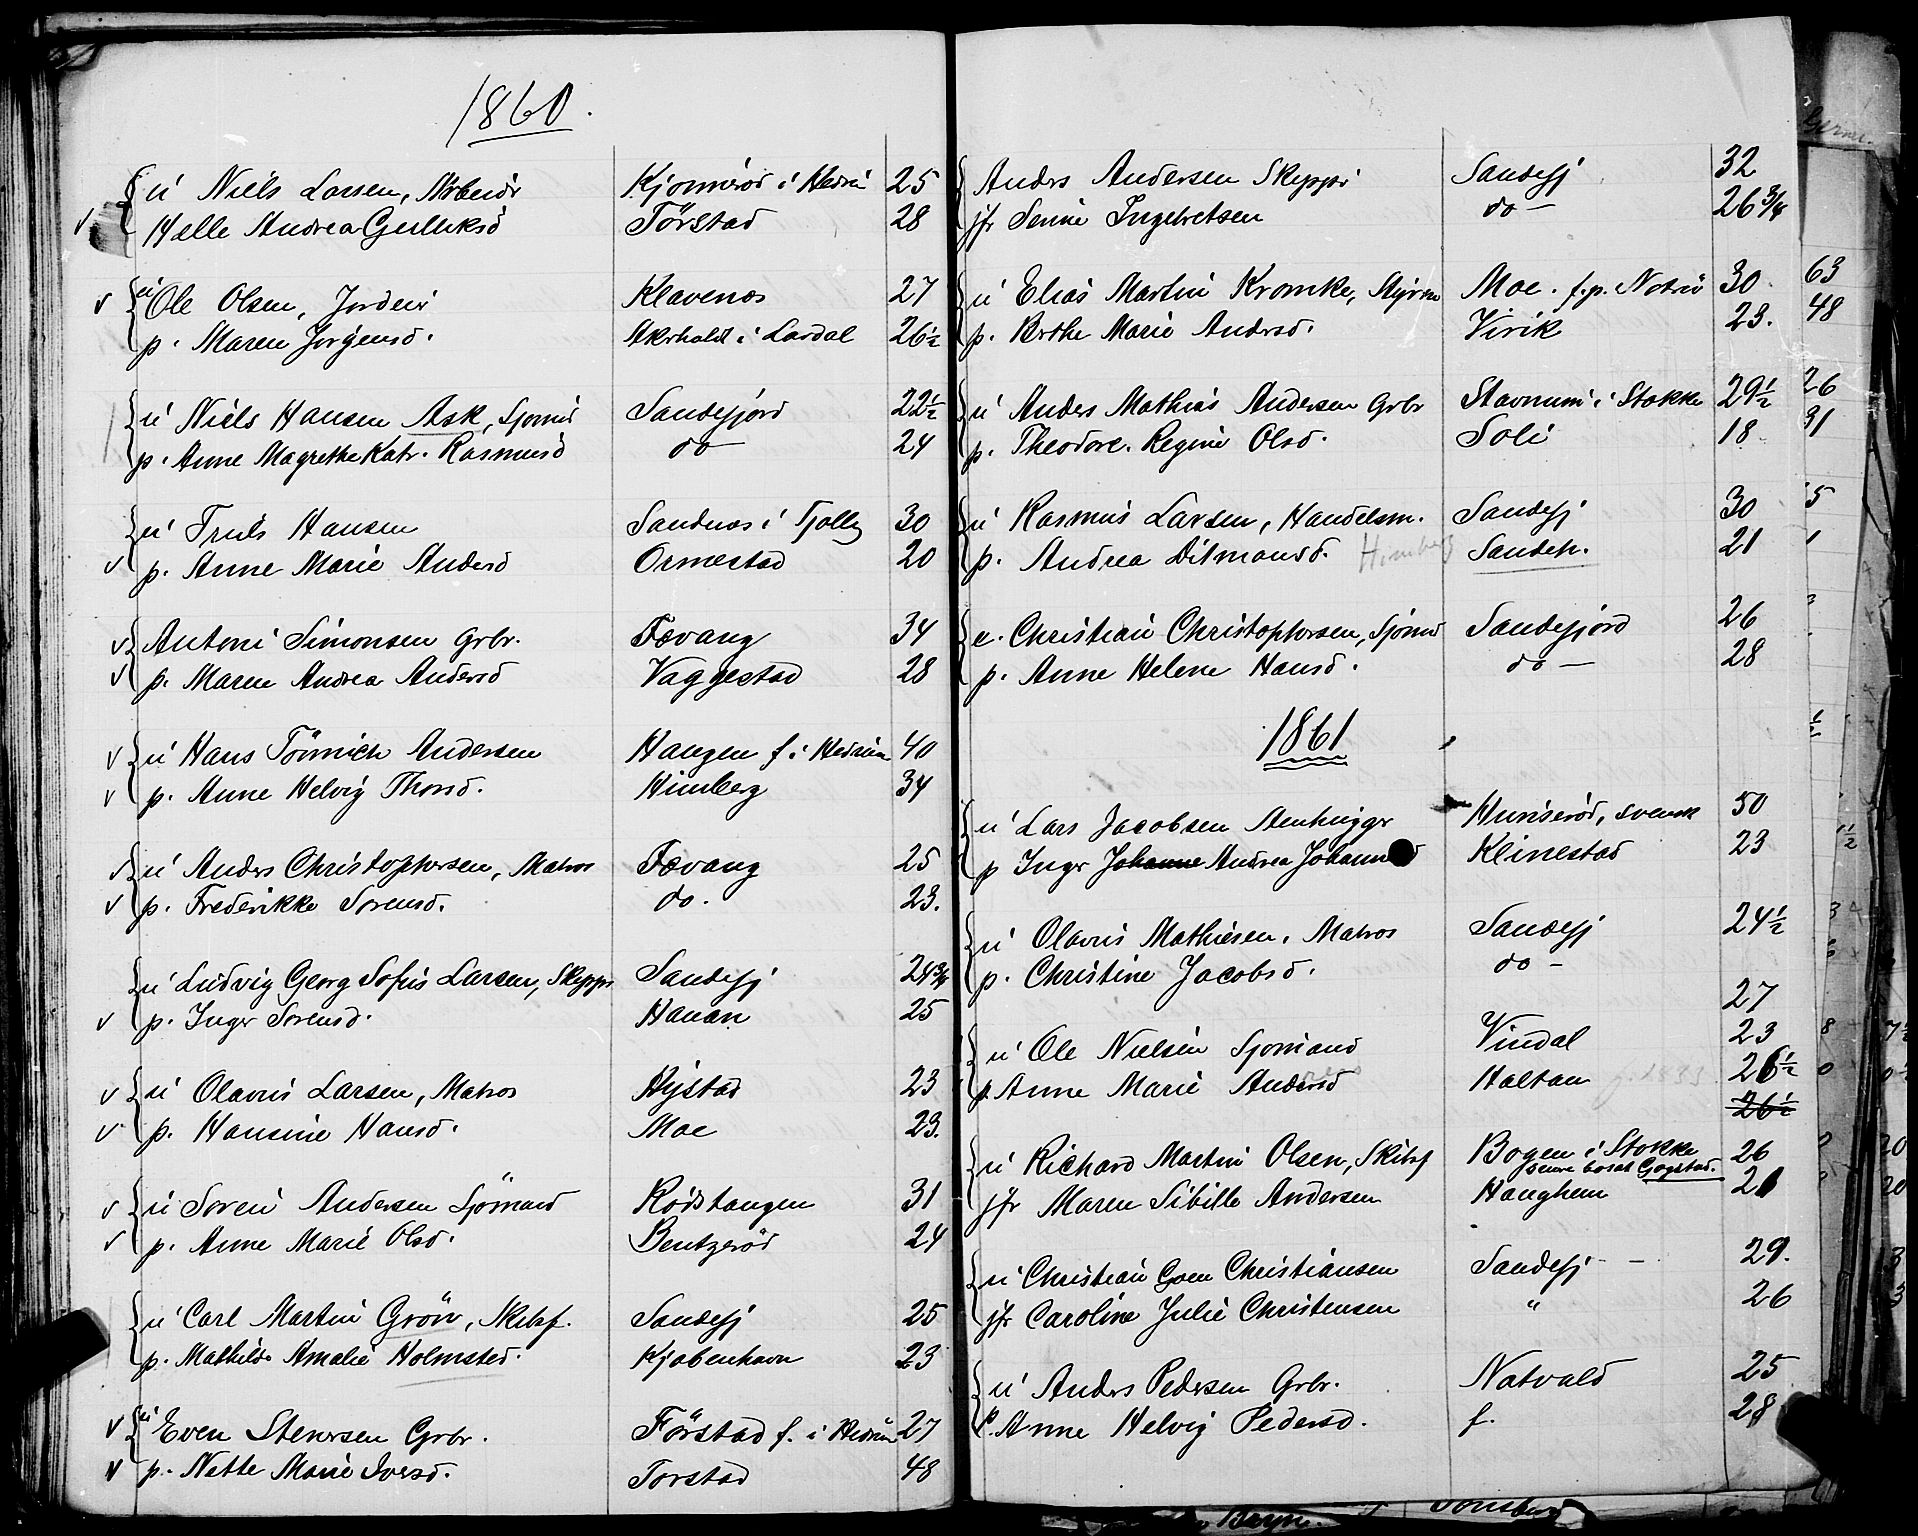 1860.
u Niels Larsen, Arbeidr Kjonnerød i Hedru 25
Helle Andrea Gulliksd Törstad 28
u Ole Olsen, Jordeir Klavenæs 27
p. Maren Jørgensd. Akrholdt i Lardal 26 1/2
u Niels Hansen Ask, Sjomd Sandefjord 22 1/2
p. Anne Magrethe Katr. Rasmusd do 24
u Truls Hansen Sandnæs i Tjolling 30
p. Anne Marie Andersd Ormestad 20
Antoni Simonsen Grbr. Fævang 34
p. Maren Andrea Andersd Vaggestad 28
u Hans Andersen Haugen f. i Hedrum 40
p. Anne Helvig Thorsd. Himberg 34
u Anders Christophersen, Matros Fævang 25
p. Frederikke Sorensd. do. 23.
u Ludvig Georg Sofus Larsen, Skippr Sandefj 24 3/4
p. Inger Sorensd. Hauan 25
u Olavus Larsen, Matros Nystad 23
p. Hansine Hansd. Moe 23.
u Soren Andersen Sjömand Rødstangen 31
p. Anne Marie Olsd. Bentzerød 24
u Carl Martin Grön, Skibsf. Sandefj 25
p. Mathilde Amalie Holmsted. Kjøbenhavn 23
u Even Stenersen Grbr. Förstad f. i Hedrum 27
p. Nette Marie Iversd. Torstad 48
Anders Andersen Skippr Sandefj 32
jfr Serine Ingebretsen do — 26 3/4
u Elias Martin Kromke, Styrm Moe. f.p. Nøtrø 30
p. Brthe Marie Andersd. Virik 23.
u Anders Mathias Andersen Grbr Stavnum i Stokke 29 1/2
p. Theodore. Regine Olsd. Soli 18
u Rasmus Larsen, Handelsm. Sandefj 30
p. Andrea Ditmansd. Himberg Sandeh. 21
e. Christian Christophersen, Sjømd Sandefjord 26
p. Anne Helene Hansd. do — 28
1861
u Lars Jacobsen Stenhugger Hunserød, svensk 50
p Ingr Johanne Andrea Klinestad 23
u Olavus Mathisen, Matros Sandefj 24 1/2
p. Christine Jacobsd. do — 27
u Ole Nielsen Sjomand Vindal 23
p. Anne Marie Andersd Haltan g. 1833 26 1/2
26 1/2
u Richard Martin Olsen, Skibsf Bogen i Stokke 26
senere bosat Gogstad.
jfr Maren Sibille Andersen Haughem 21
u Christian Goen Christiansen Sandefj — 29.
jfr Caroline Julie Christensen " 26
u Anders Pedersen Grbr. Natvald 25
p. Anne Helvig Pedersd. f. 28
63
48
26
31